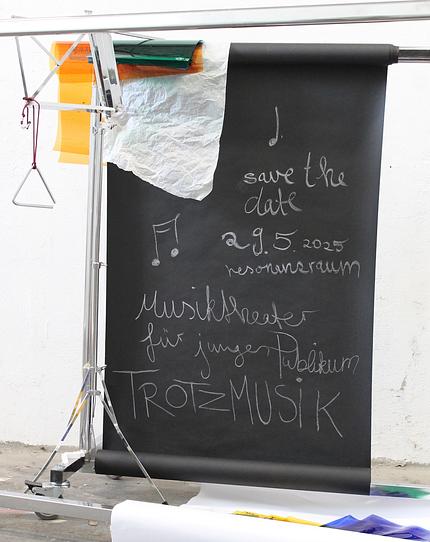 save the
date
29.5.2025
resonanzraum
Musiktheater
für junges Publikum
TROTZMUSIK